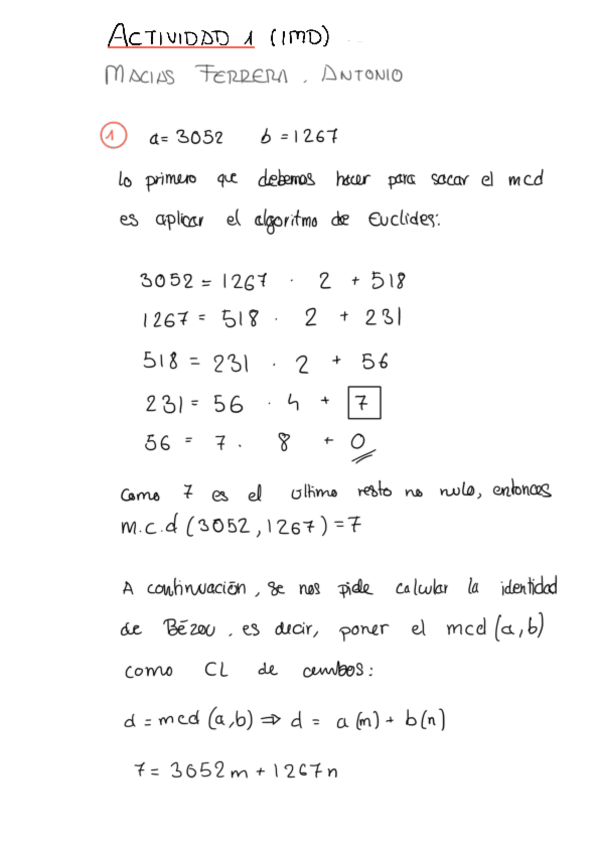 ACTIVIDAD 1 (IMD)
MACIAS FERRERA, ANTONIO
1 a = 3052 b = 1267
lo primero que debemos hacer para sacar el mcd
es aplicar el algoritmo de Euclides:
3052 = 1267 · 2 + 518
1267 = 518 · 2 + 231
518 = 231 · 2 + 56
231 = 56 · 4 + 7
56 = 7 · 8 + 0
Como 7 es el ultimo resto no nulo, entonces
m.c.d (3052, 1267) = 7
A continuación, se nos pide calcular la identidad
de Bézou, es decir, poner el mcd (a,b)
como CL de ambos:
d = mcd (a,b) ⇒ d = a (m) + b (n)
7 = 3052 m + 1267 n